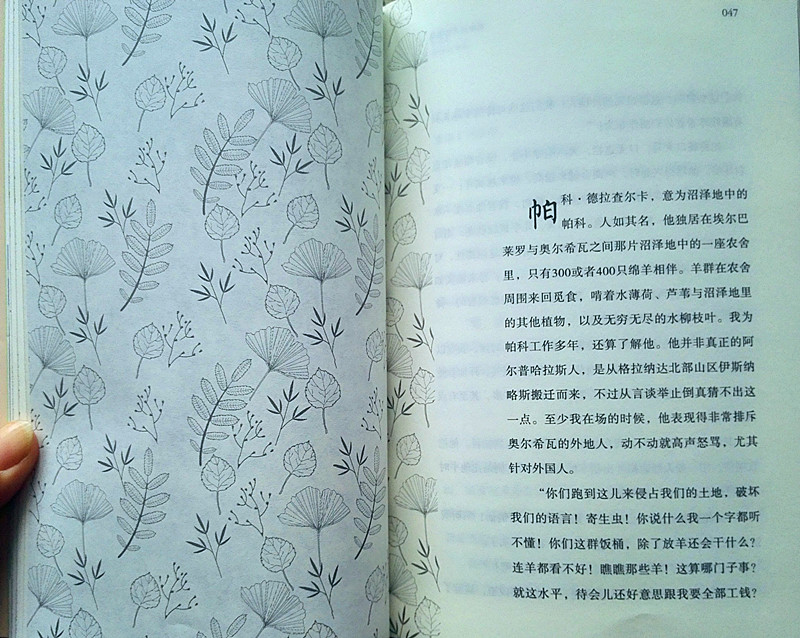 047
帕科·德拉查尔卡，意为沼泽地中的
帕科。人如其名，他独居在埃尔巴
莱罗与奥尔希瓦之间那片沼泽地中的一座农舍
里，只有300或者400只绵羊相伴。羊群在农舍
周围来回觅食，啃着水薄荷、芦苇与沼泽地里
的其他植物，以及无穷无尽的水柳枝叶。我为
帕科工作多年，还算了解他。他并非真正的阿
尔普哈拉斯人，是从格拉纳达北部山区伊斯纳
略斯搬迁而来，不过从言谈举止倒真猜不出这
一点。至少我在场的时候，他表现得非常排斥
奥尔希瓦的外地人，动不动就高声怒骂，尤其
针对外国人。
“你们跑到这儿来侵占我们的土地，破坏
我们的语言！寄生虫！你说什么我一个字都听
不懂！你们这群饭桶，除了放羊还会干什么？
连羊都看不好！瞧瞧那些羊！这算哪门子事？
就这水平，待会儿还好意思跟我要全部工钱？